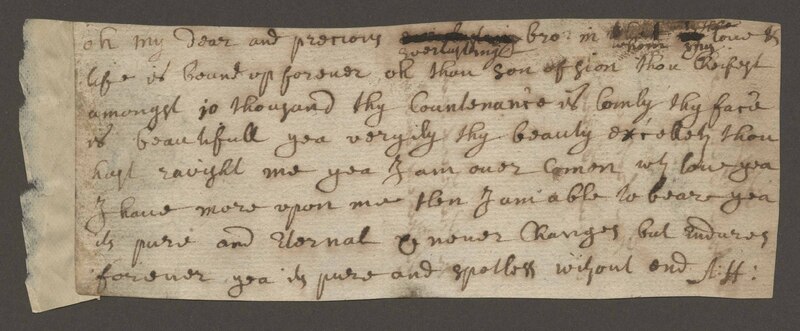 oh my dear and precious everlasting bro: in whom my love &
life is bound up forever oh thou son of sion thou cheifest
amongst 10 thousand thy Countenance is Comly thy face
is beautifull yea veryly thy beauty excelleth thou
hast ravight me yea I am over Comen wth love yea
I have more upon me then I am able to beare yea
its pure and Eternal & never Changes but Endures
forever yea its pure and spotless without end